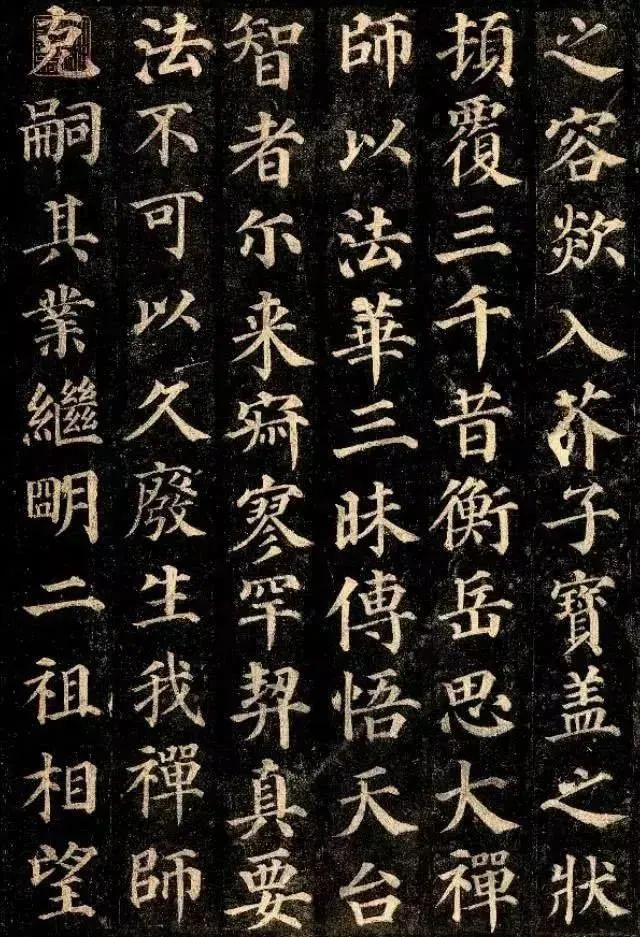 之容欻入芥子寶盖之狀
頓覆三千昔衡岳思大禪
師以法華三昧傳悟天台
智者尔来寂寥罕契真要
法不可以久廢生我禪師
克嗣其業繼明二祖相望